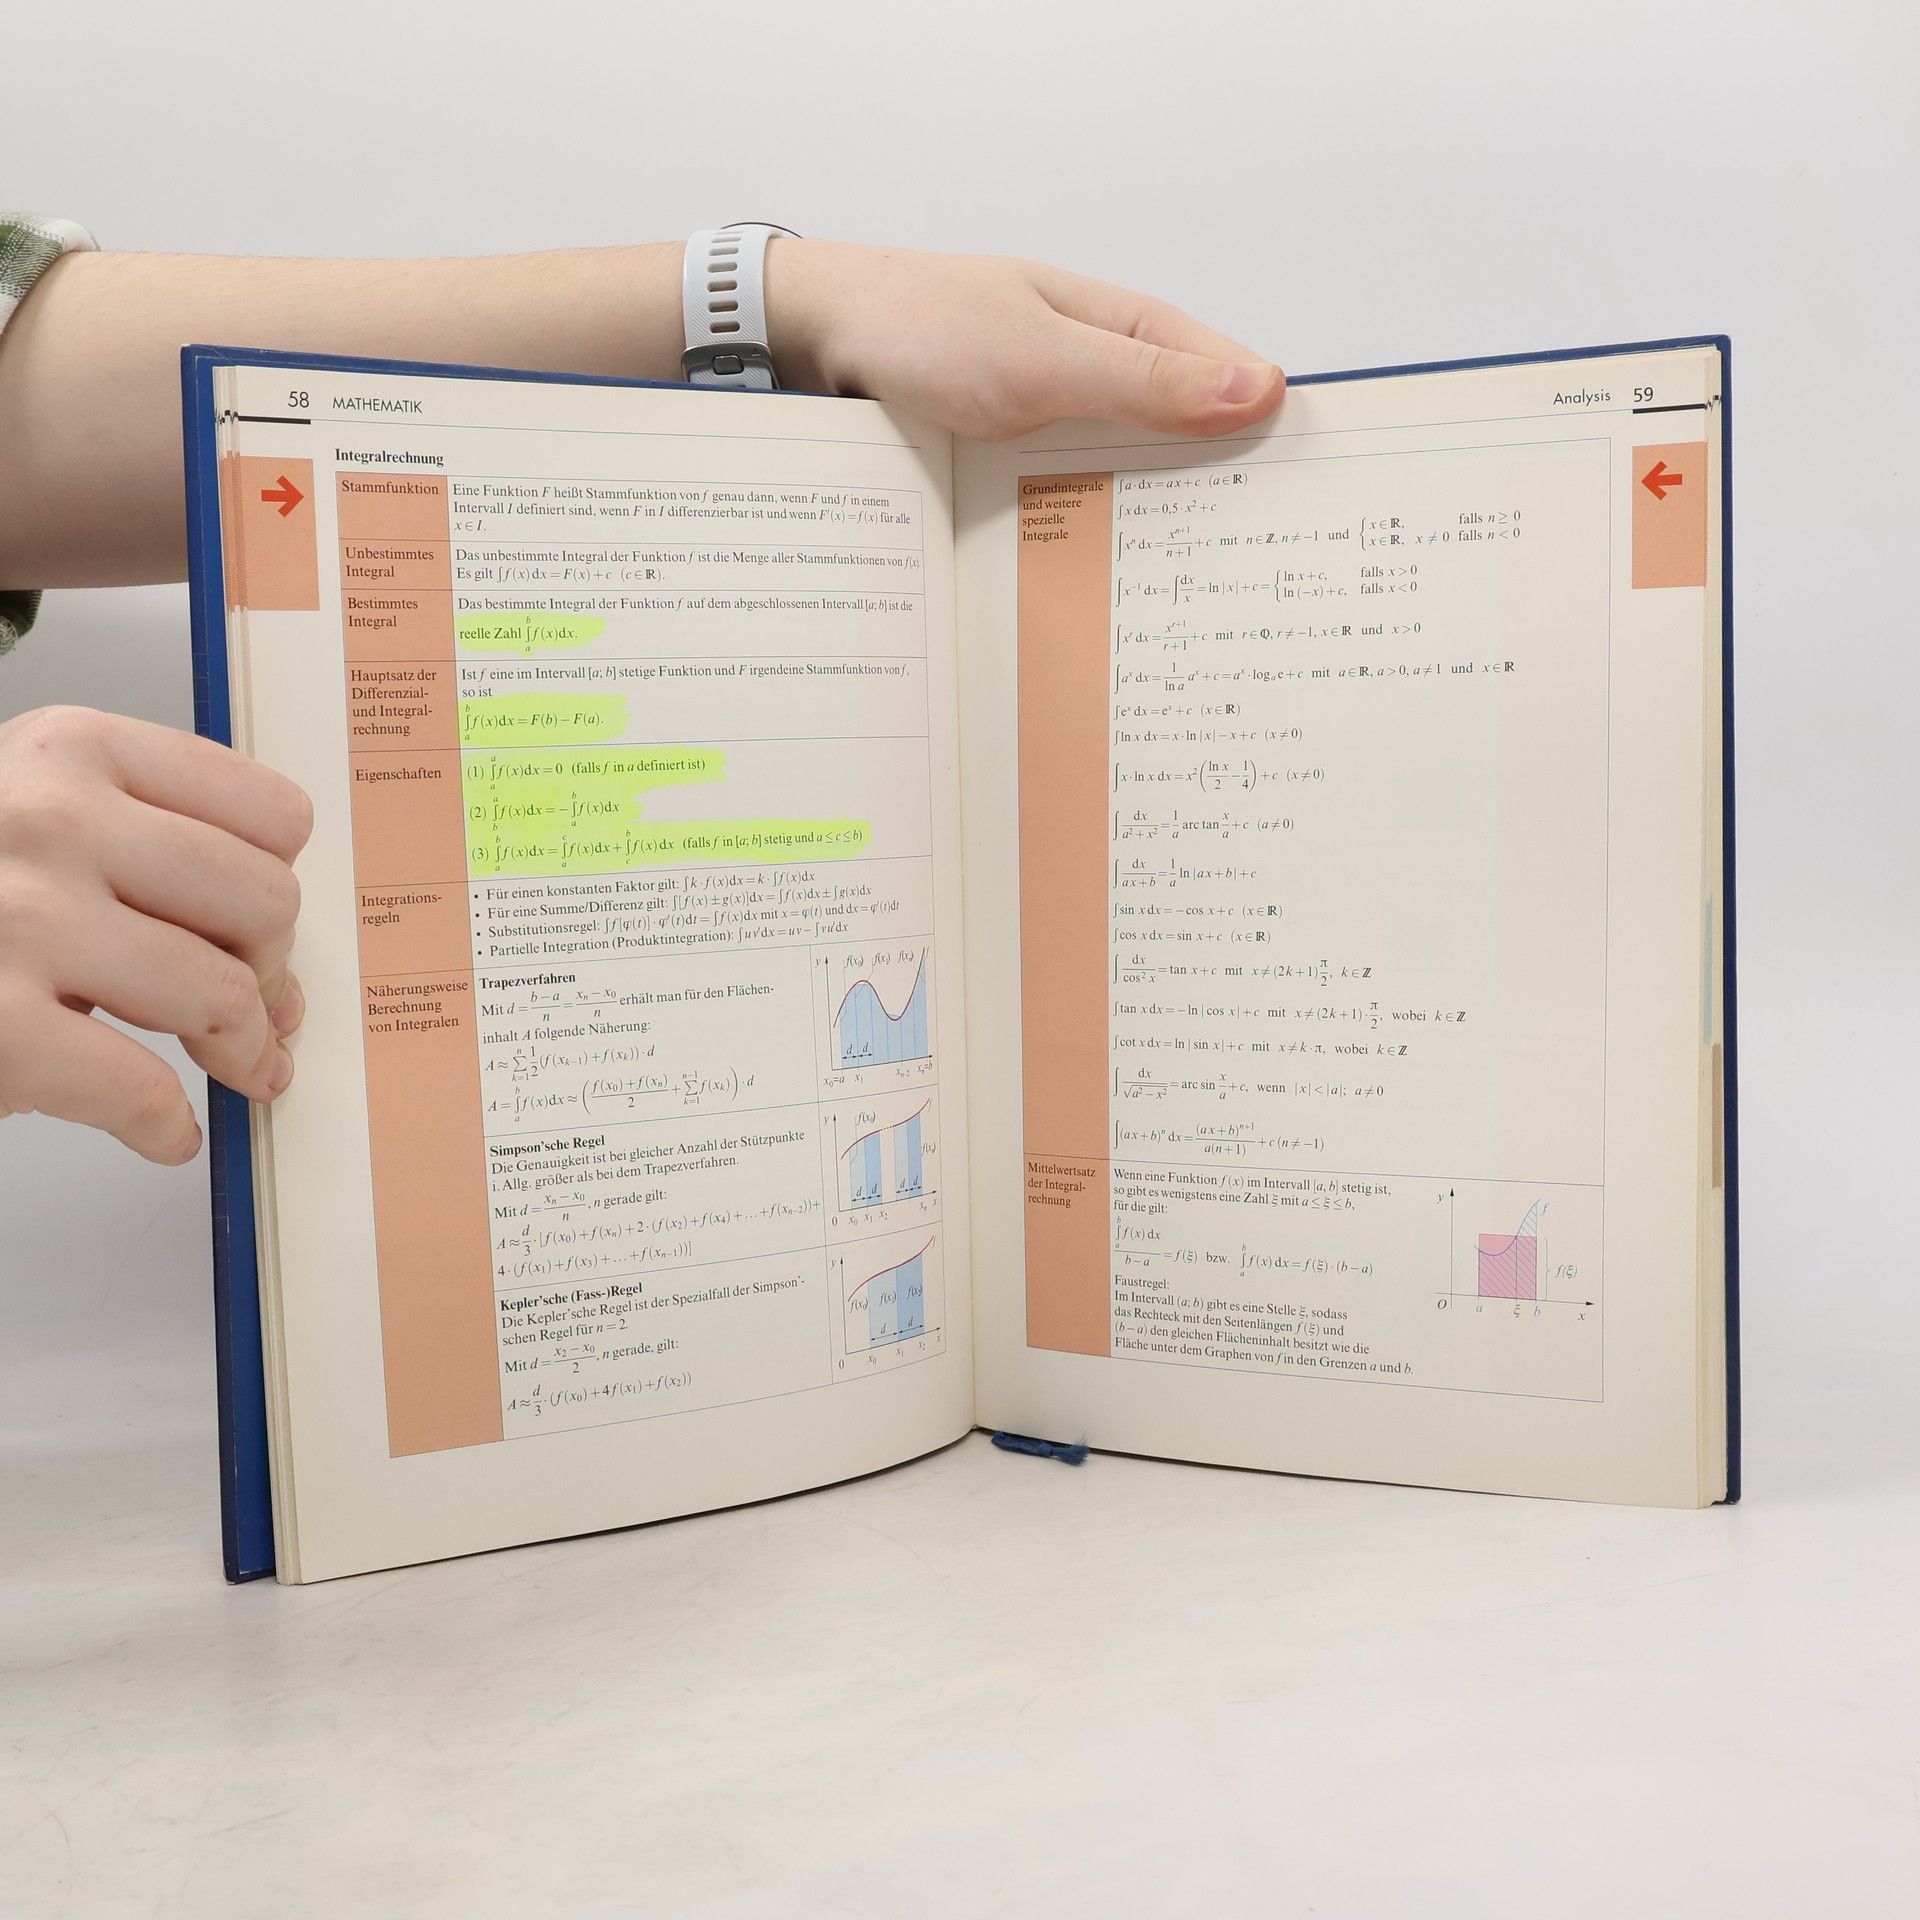 58 MATHEMATIK
Integralrechnung
Stammfunktion
Eine Funktion F heißt Stammfunktion von f genau dann, wenn F und f in einem
Intervall I definiert sind, wenn F in I differenzierbar ist und wenn F′(x) = f(x) für alle
x ∈ I.
Unbestimmtes
Integral
Das unbestimmte Integral der Funktion f ist die Menge aller Stammfunktionen von f(x).
Es gilt ∫f(x)dx = F(x) + c (c ∈ ℝ).
Bestimmtes
Integral
Das bestimmte Integral der Funktion f auf dem abgeschlossenen Intervall [a; b] ist die
reelle Zahl ∫_a^b f(x)dx.
Hauptsatz der
Differenzial-
und Integral-
rechnung
Ist f eine im Intervall [a; b] stetige Funktion und F irgendeine Stammfunktion von f,
so ist
∫_a^b f(x)dx = F(b) − F(a).
Eigenschaften
(1) ∫_a^a f(x)dx = 0 (falls f in a definiert ist)
(2) ∫_b^a f(x)dx = −∫_a^b f(x)dx
(3) ∫_a^b f(x)dx = ∫_a^c f(x)dx + ∫_c^b f(x)dx (falls f in [a; b] stetig und a ≤ c ≤ b)
Integrations-
regeln
• Für einen konstanten Faktor gilt: ∫k·f(x)dx = k·∫f(x)dx
• Für eine Summe/Differenz gilt: ∫[f(x) ± g(x)]dx = ∫f(x)dx ± ∫g(x)dx
• Substitutionsregel: ∫f[φ(t)]·φ′(t)dt = ∫f(x)dx mit x = φ(t) und dx = φ′(t)dt
• Partielle Integration (Produktintegration): ∫uv′dx = uv − ∫vu′dx
Näherungsweise
Berechnung
von Integralen
Trapezverfahren
Mit d = (b−a)/n = (xₙ−x₀)/n erhält man für den Flächen-
inhalt A folgende Näherung:
A ≈ ∑_{k=1}^n 1/2 (f(x_{k−1}) + f(x_k))·d
A = ∫_a^b f(x)dx ≈ ((f(x₀) + f(xₙ))/2 + ∑_{k=1}^{n−1} f(x_k))·d
y f(x₀) f(x₁) f(xₙ) f
d d
x₀=a x₁ xₙ₋₂ xₙ=b
Simpson'sche Regel
Die Genauigkeit ist bei gleicher Anzahl der Stützpunkte
i. Allg. größer als bei dem Trapezverfahren.
Mit d = (xₙ−x₀)/n, n gerade gilt:
A ≈ d/3·[f(x₀) + f(xₙ) + 2·(f(x₂) + f(x₄) + … + f(xₙ₋₂)) +
4·(f(x₁) + f(x₃) + … + f(xₙ₋₁))]
y f(x₀) f f(xₙ)
d d d d
0 x₀ x₁ x₂ xₙ x
Kepler'sche (Fass-)Regel
Die Kepler'sche Regel ist der Spezialfall der Simpson'-
schen Regel für n = 2.
Mit d = (x₂−x₀)/2, n gerade, gilt:
A ≈ d/3·(f(x₀) + 4f(x₁) + f(x₂))
y f(x₀) f(x₁) f(x₂) f
d d
0 x₀ x₁ x₂ x
Analysis 59
Grundintegrale
und weitere
spezielle
Integrale
∫a·dx = ax + c (a ∈ ℝ)
∫x dx = 0,5·x² + c
∫xⁿ dx = xⁿ⁺¹/(n+1) + c mit n ∈ ℤ, n ≠ −1 und { x ∈ ℝ, falls n ≥ 0
x ∈ ℝ, x ≠ 0 falls n < 0
∫x⁻¹ dx = ∫dx/x = ln|x| + c = { ln x + c, falls x > 0
ln(−x) + c, falls x < 0
∫xʳ dx = xʳ⁺¹/(r+1) + c mit r ∈ ℚ, r ≠ −1, x ∈ ℝ und x > 0
∫aˣ dx = 1/(ln a) aˣ + c = aˣ·logₐ e + c mit a ∈ ℝ, a > 0, a ≠ 1 und x ∈ ℝ
∫eˣ dx = eˣ + c (x ∈ ℝ)
∫ln x dx = x·ln|x| − x + c (x ≠ 0)
∫x·ln x dx = x²((ln x)/2 − 1/4) + c (x ≠ 0)
∫dx/(a² + x²) = 1/a arc tan x/a + c (a ≠ 0)
∫dx/(ax + b) = 1/a ln|ax + b| + c
∫sin x dx = −cos x + c (x ∈ ℝ)
∫cos x dx = sin x + c (x ∈ ℝ)
∫dx/cos² x = tan x + c mit x ≠ (2k+1)π/2, k ∈ ℤ
∫tan x dx = −ln|cos x| + c mit x ≠ (2k+1)·π/2, wobei k ∈ ℤ
∫cot x dx = ln|sin x| + c mit x ≠ k·π, wobei k ∈ ℤ
∫dx/√(a² − x²) = arc sin x/a + c, wenn |x| < |a|; a ≠ 0
∫(ax + b)ⁿ dx = (ax + b)ⁿ⁺¹/(a(n+1)) + c (n ≠ −1)
Mittelwertsatz
der Integral-
rechnung
Wenn eine Funktion f(x) im Intervall [a, b] stetig ist,
so gibt es wenigstens eine Zahl ξ mit a ≤ ξ ≤ b,
für die gilt:
∫_a^b f(x) dx/(b−a) = f(ξ) bzw. ∫_a^b f(x) dx = f(ξ)·(b − a)
Faustregel:
Im Intervall (a; b) gibt es eine Stelle ξ, sodass
das Rechteck mit den Seitenlängen f(ξ) und
(b − a) den gleichen Flächeninhalt besitzt wie die
Fläche unter dem Graphen von f in den Grenzen a und b.
y f
f(ξ)
O a ξ b x